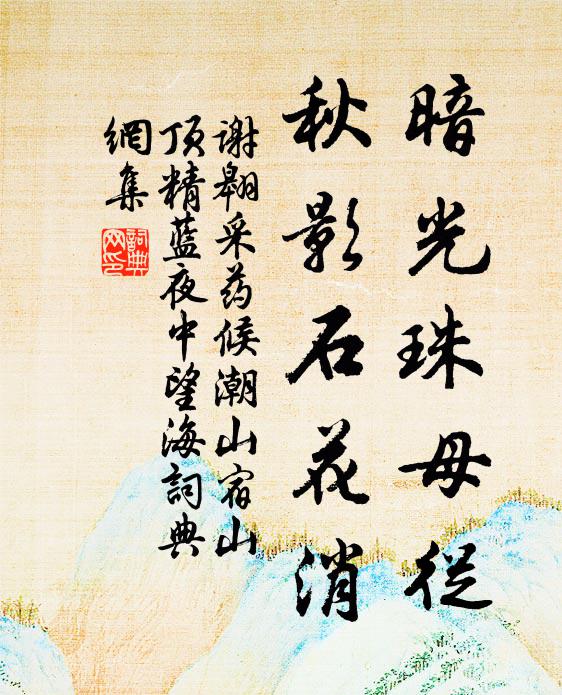 暗光珠母徙
秋影石花消
谢翱采药候潮山宿山
顶精蓝夜中望海詞典
網集
詞典
网印